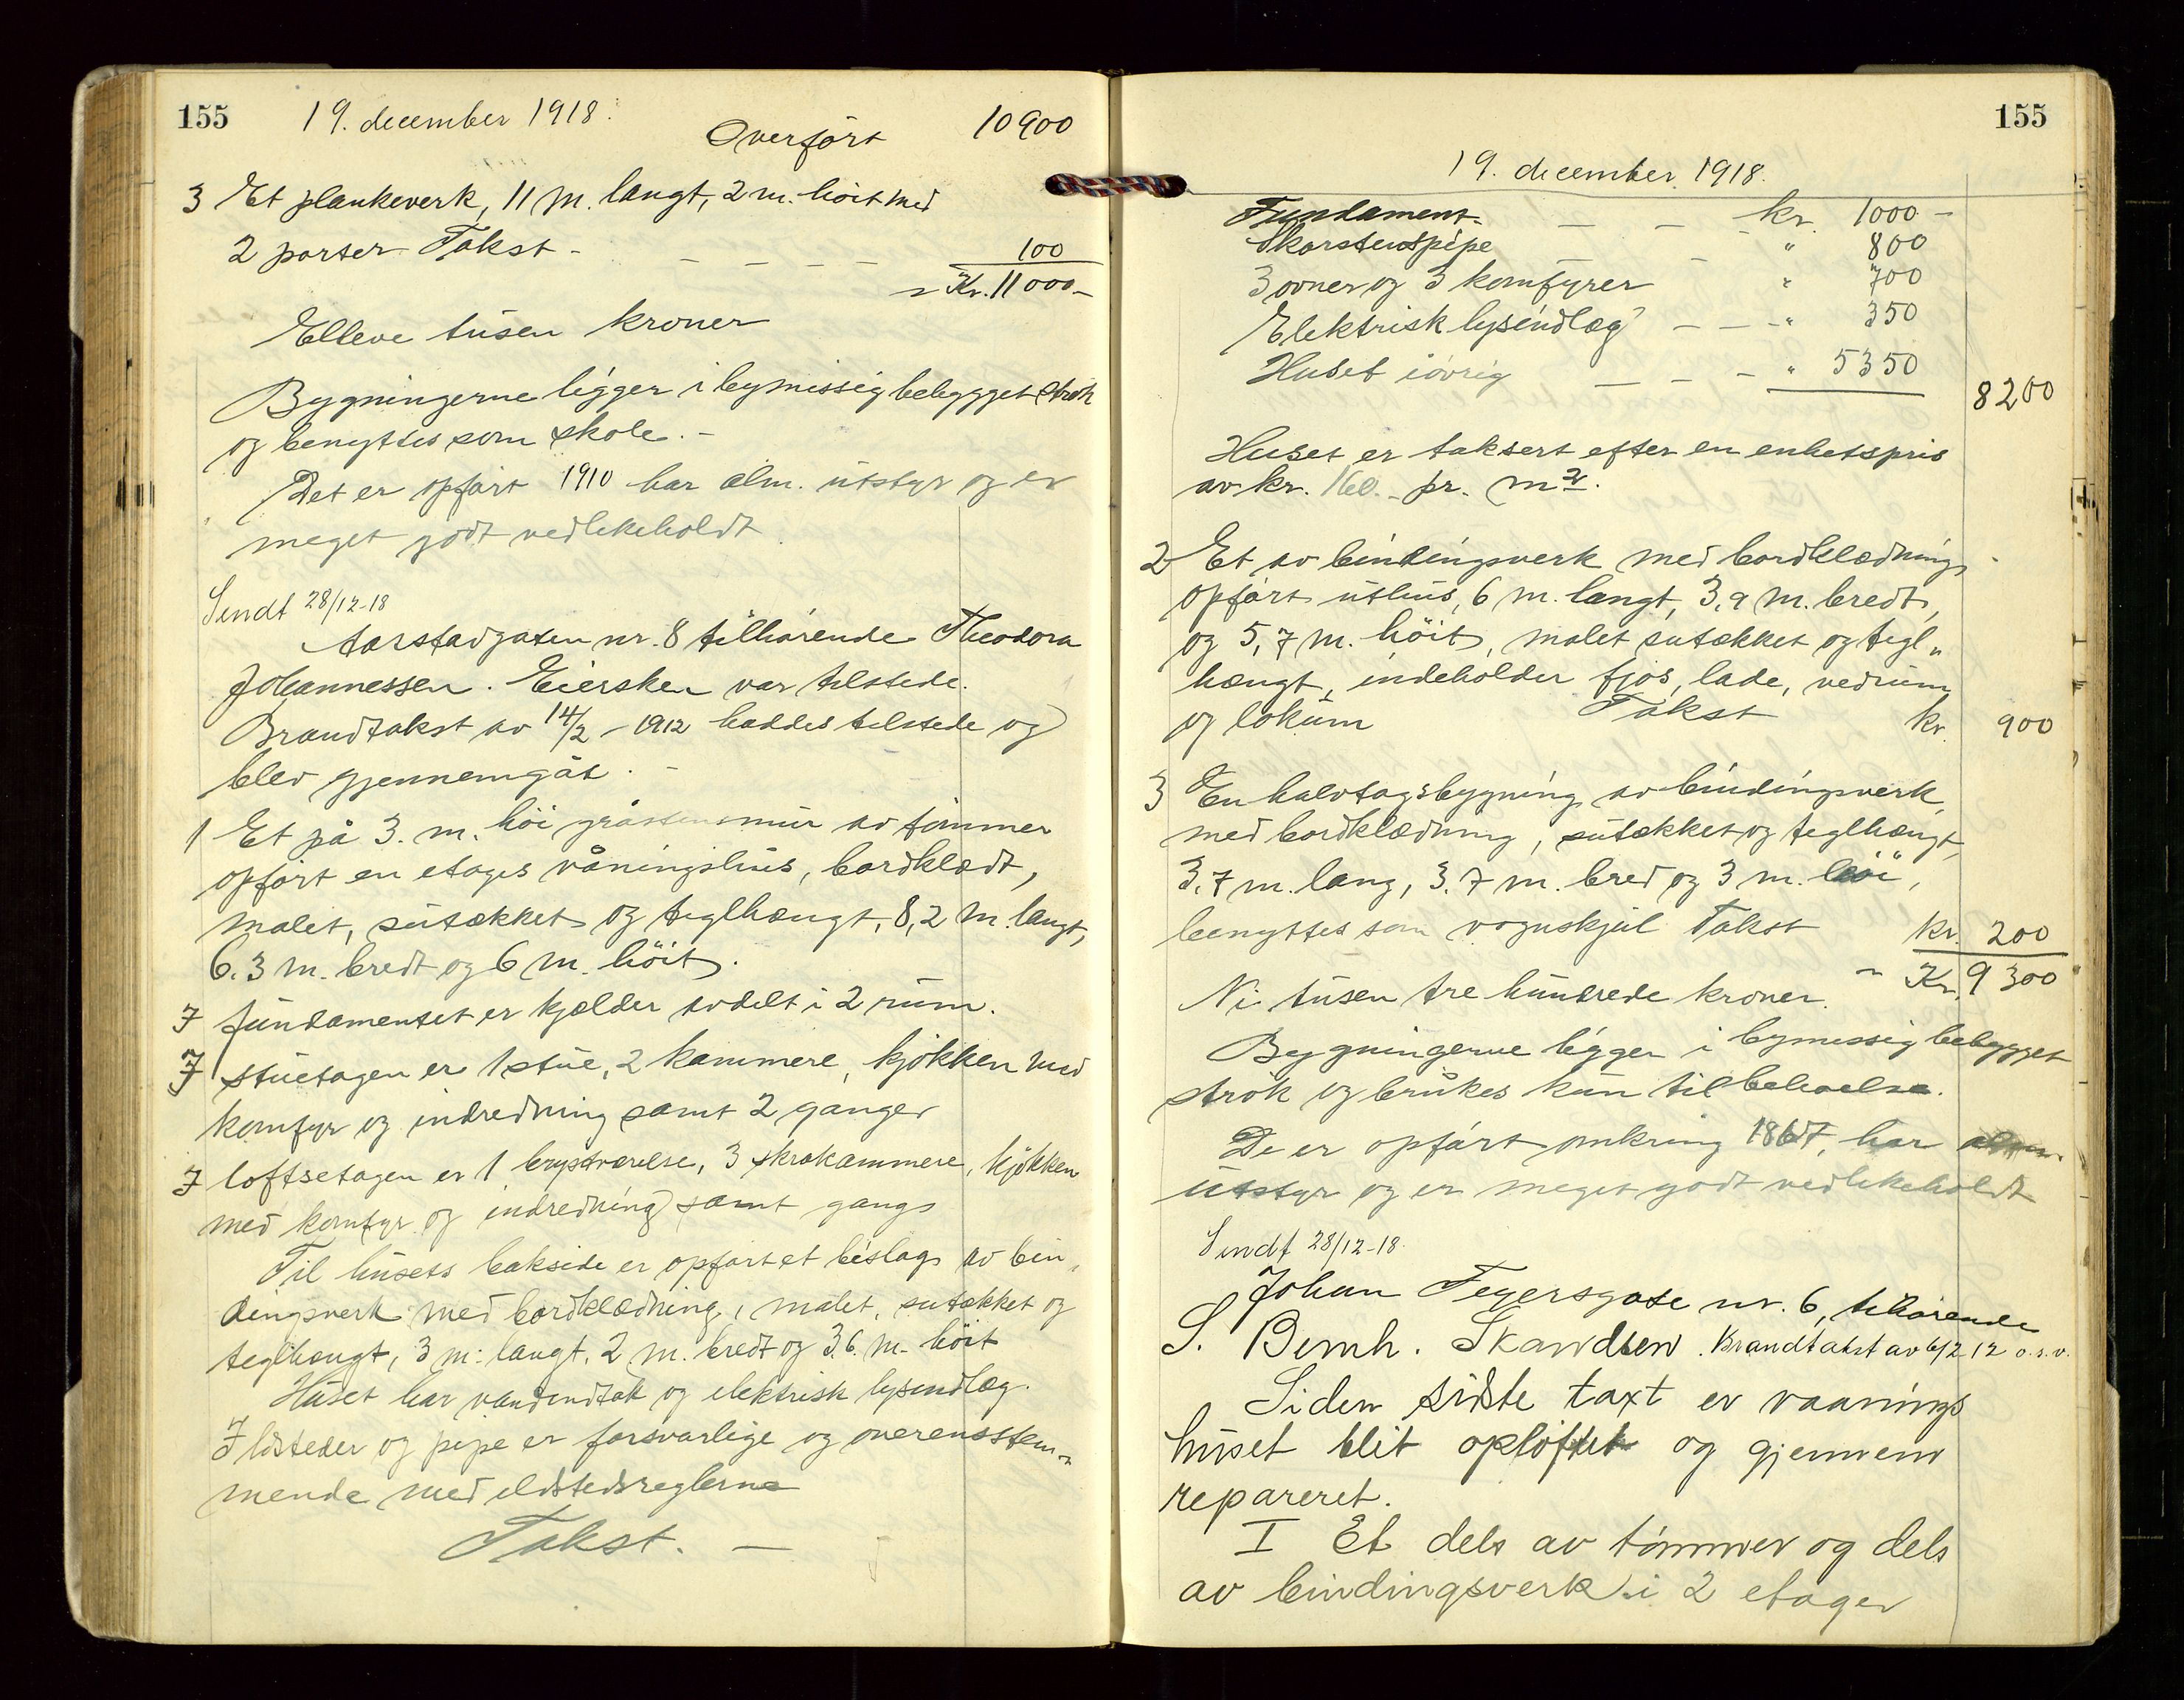 155 19. december 1918.
Overført 10900
3 Et plankeverk, 11 m. langt, 2 m. höit med
2 porter Takst - - - - - 100
- Kr. 11000 -
Elleve tusen kroner
Bygningerne ligger i bymessig bebygget strök
og benyttes som skole. -
Det er opført 1910 har alm. utstyr og er
meget godt vedlikeholdt.
Sendt 28/12-18
Aarstadgaten nr. 8 tilhørende Theodora
Johannessen. Eiersken var tilstede.
Brandtakst av 14/2 - 1912 haddes tilstede og
blev gjennemgåt. -
1 Et på 3. m. höi gråstensmur av tømmer
opført en etages våningshus, bordklædt,
malet, sutækket og teglhængt, 8,2 m. langt,
6.3 m. bredt og 6 m. höit.
I fundamentet er kjælder avdelt i 2 rum.
I stuetagen er 1 stue, 2 kammere, kjökken med
komfyr og indredning samt 2 ganger
I loftsetagen er 1 brystværelse, 3 skråkammere, kjökken
med komfyr og indredning samt gangs
Til husets bakside er opført et bislag av bin„
dingsverk med bordklædning, malet, sutækket og
teglhængt, 3 m. langt, 2 m. bredt og 3.6. m. höit
Huset har vandindtak og elektrisk lysindlæg.
Ildsteder og pipe er forsvarlige og overensstem„
mende med ildstedsreglerne
Takst. -
155
19. december 1918.
Fundament - - - kr. 1000 -
Skorstenspipe - - " 800
3 ovner og 3 komfyrer " 700
Elektrisk lysindlæg - - - " 350
Huset iøvrig - - - " 5350
8200
Huset er taksert efter en enhetspris
av kr. 160. - pr. m2.
2 Et av bindingsverk med bordklædning
opført uthus, 6 m. langt, 3,9 m. bredt,
og 5,7 m. höit, malet sutækket og tegl„
hængt, indeholder fjøs, lade, vedrum
og lokum Takst kr. 900
3 En halvtagsbygning av bindingsverk,
med bordklædning, sutækket og teglhængt,
3.7 m. lang, 3.7 m. bred og 3 m. höi,
benyttes som vognskjul Takst kr. 200
Ni tusen tre hundrede kroner. - Kr. 9300
Bygningerne ligger i bymessig bebygget
strök og brukes kun til beboelse.
De er opført omkring 1867, har alm.
utstyr og er meget godt vedlikeholdt
Sendt 28/12-18.
Johan Feyersgate nr. 6, tilhørende
S. Bernh. Skandsen. Brandtakst av 6/2 12 o.s.v.
Siden sidste taxt er vaanings
huset blit opløftet og gjennem
repareret.
I Et dels av tømmer og dels
av bindingsverk i 2 etager